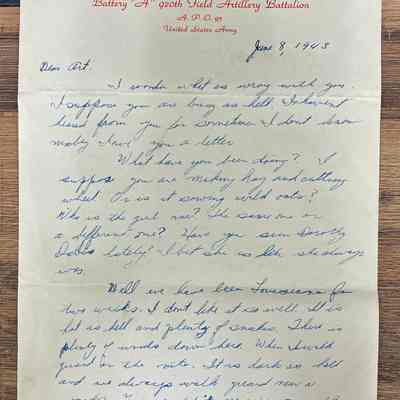 Battery "A" 920th Field Artillery Battalion
A. P. O. 95
United States Army
June 8, 1943
Dear Art.
I wonder what is wrong with you.
I suppose you are busy as hell. I havent
heard from you for sometime I dont know
maby I owe you a letter
What have you been doing? I
suppose you are making hay and cutting
wheat Or is it sowing wild oats?
Who is the girl now? The same one or
a different one? Have you seen Dorothy
lately? I bet she is like she always
was.
Well we have been Louisiana for
two weeks. I dont like it so well. It is
hot as hell and plenty of snakes. There is
plenty of woods down here. When I
guard in the nite. It is dark as hell
and we always walk guard near a